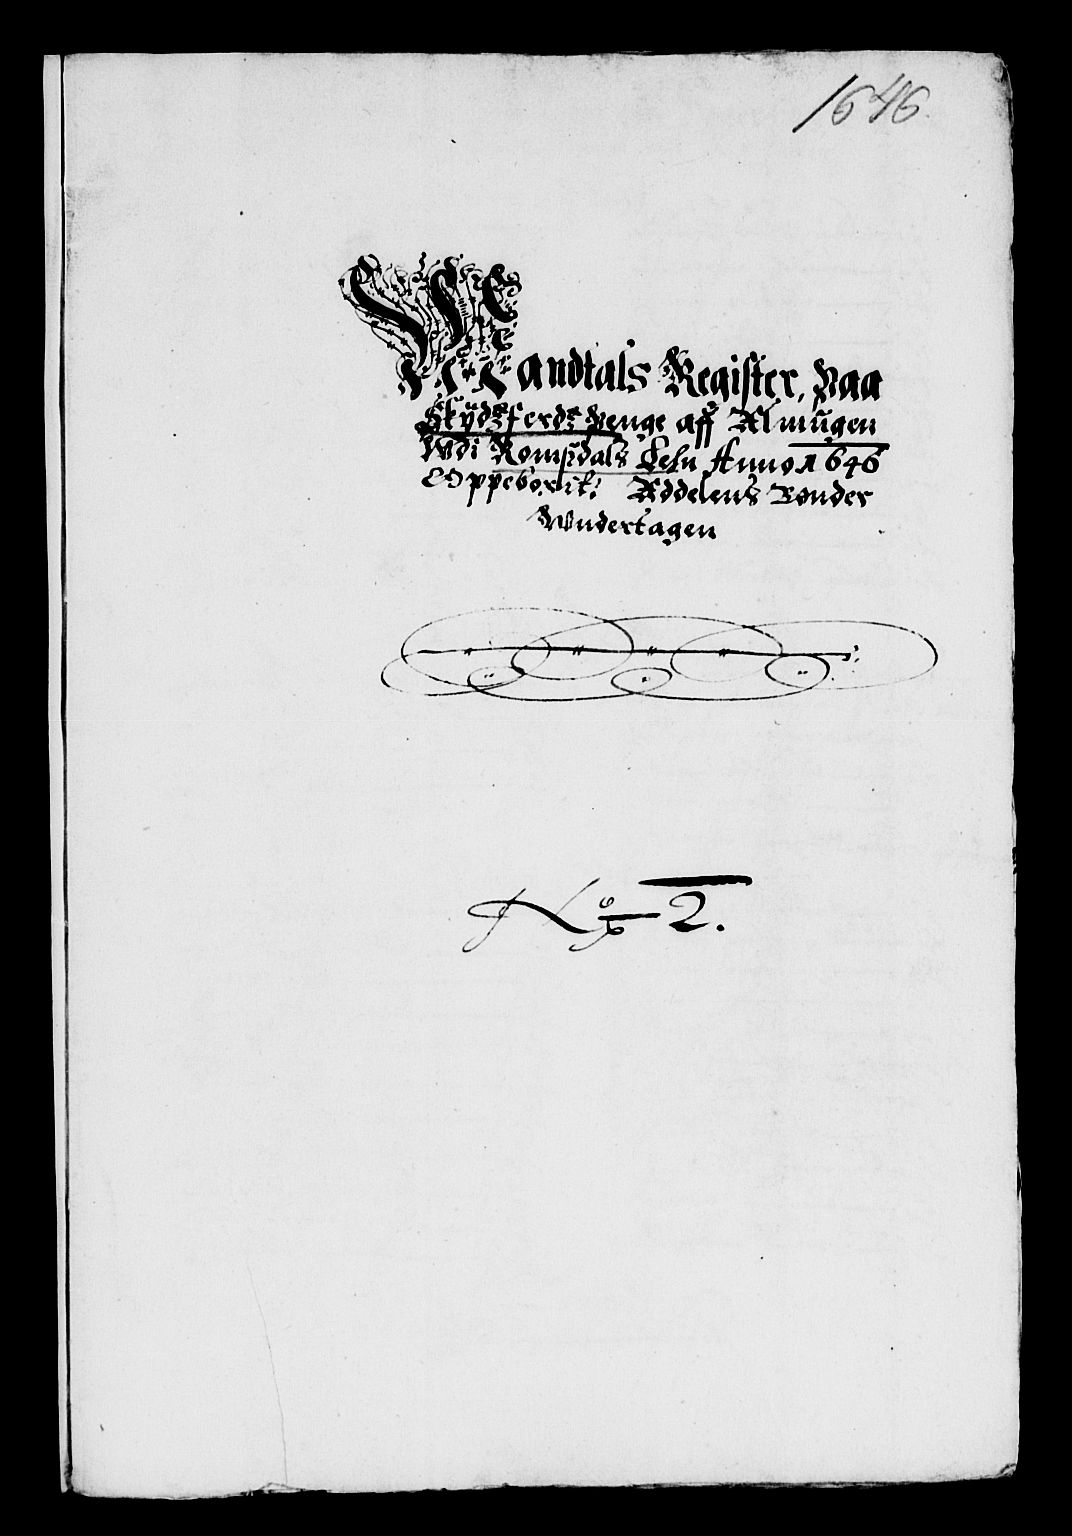 1646.
Mandtals Register, Paa
Skÿdzferdz Penge aff Almŭgen
Wdi Romsdals Lehn Anno 1646
Oppeborit: Addelens Bønder
Wndertagen
No 2.